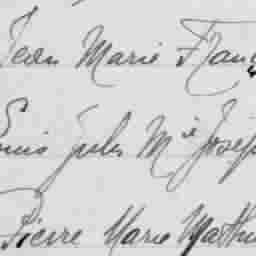 Jean Marie Franç
Louis Jules Mie Joseph
Pierre Marie Mathu